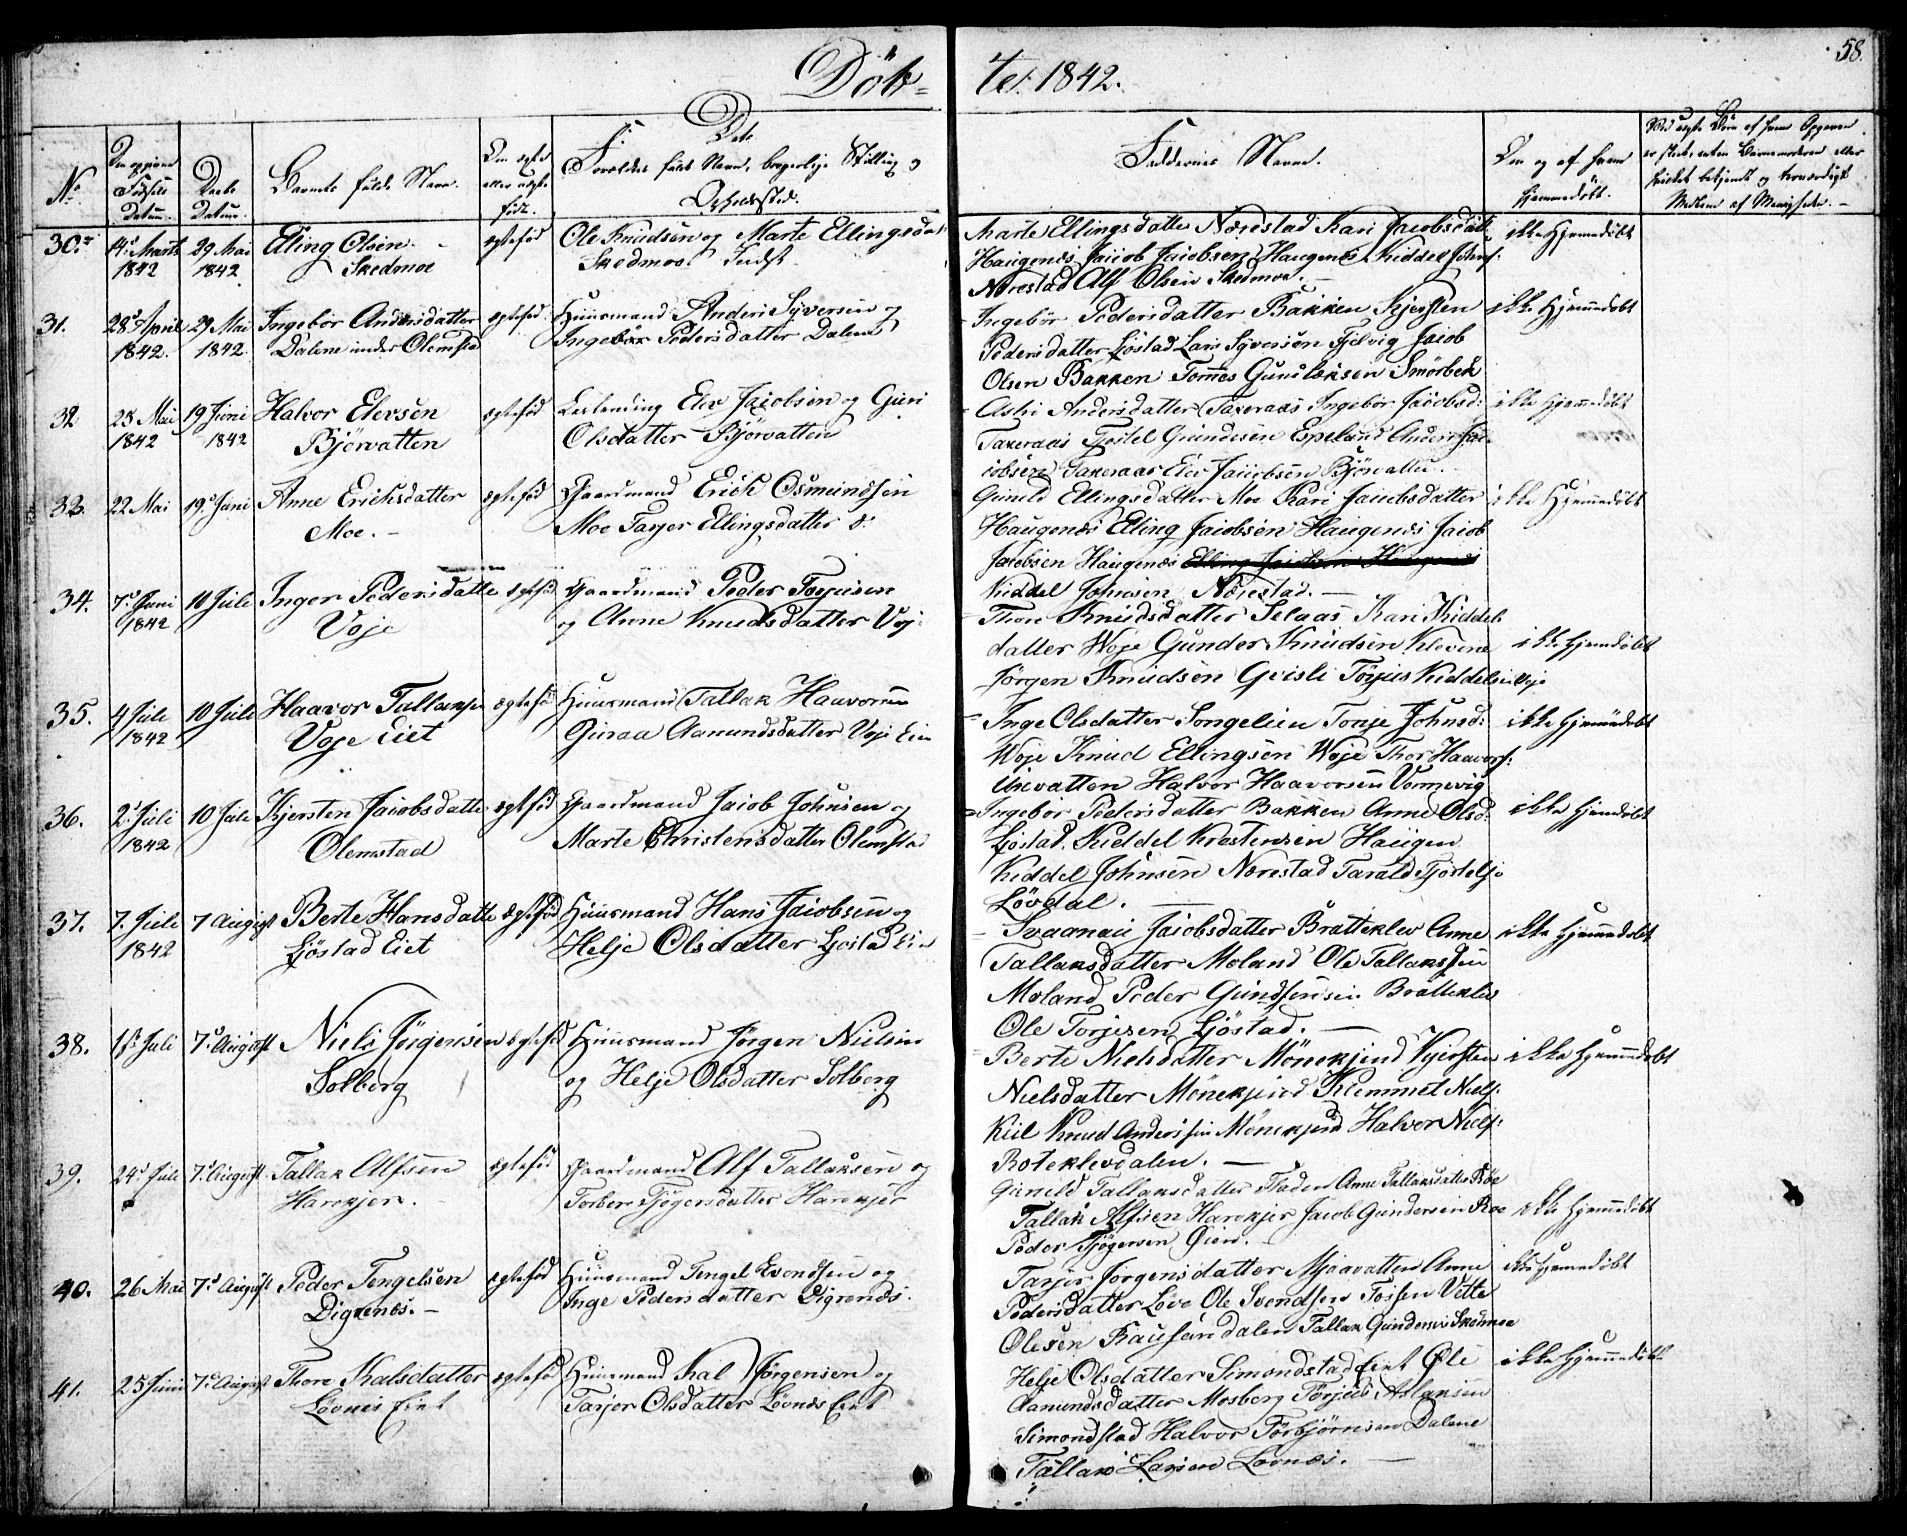 58.
Döb= te: 1842.
No
Datum.
Daabs Datum.
Barnets fulde Navn.
Forældres fulde Navn, borgerlige Stilling og
Opholdssted.
Faddernes Navne.
Om og af hvem
hjemmedöbt.
30. 14. Marts 1842 29 Mai 1842 Elling Olsen Skedmoe ægtefød
Ole Knudsen og Marte Ellingsdat
Skedmoe Indst
Marte Ellingsdatter Nærestad Kari Jacobsdatt
Haugenes Jacob Jacobsen Haugenes Kiddel Johns:
Nærestad Alf Olsen Skedmoe.
ikke Hjemmedöbt
31. 28. April 1842. 29 Mai 1842 Ingebör Andersdatter
Dalene under Olemstad ægtefød
Huusmand Anders Syversen og
Ingebör Pedersdatter Dalene
Ingebör Pedersdatter Bakken Kjersten
Pedersdatter Ljöstad Lars Syversen Fjelvig Jacob
Olsen Bakken Tomes Gunlaksen Smörbek
ikke Hjemmedöbt
32 25 Mai 1842 19 Juni 1842 Halvor Elevsen
Björvatten ægtefød
Leilending Elev Jacobsen og Guri
Olsdatter Björvatten
Aslri Andersdatter Taxeraas Ingebör Jacobsd:
Taxeraas Tjöstel Gundesen Espeland Anders Ja-
cobsen Taxeraas Elev Jacobsen Björvatten.
ikke Hjemmedöbt
33. 22 Mai 19. Juni Anne Erichsdatter
Moe. ægtefød
Gaardmand Erich Osmundsen
Moe Tarjer Ellingsdatter
Gunild Ellingsdatter Moe Kari Jacobsdatter
Haugenes Elling Jacobsen Haugenes Jacob
Jacobsen Haugenes Elling Jacobsen Haugenes
Kiddel Johnsen Nærestad.
ikke Hjemmedöbt
34. 7. Juni 1842 10 Juli Inger Pedersdatte
Voje ægtefød
Gaardmand Peder Torjusen
og Anne Knudsdatter Voj
Thore Knudsdatter Selaas Kari Kiddels
datter Woje Gunder Knudsen Klevene
Jörgen Knudsen Gvisli Törjus Kiddels Voje
ikke Hjemmedöbt
35. 4 Juli 1842 10 Juli Haavor Tallaksen
Voje Eiet ægtefød
Huusmand Tallak Haavorsen
Guraa Aamundsdatter Voje Eie
Inge Olsdatter Songelien Tonje Johnsd:
Woje Knud Ellingsen Woje Thor Haavors:
Uxevatten Halvor Haavorsen Vormevig
ikke Hjemmedöbt
36. 2. Juli 1842 10 Juli Kjersten Jacobsdatte
Olemstad ægtefød
Gaardmand Jacob Johnsen og
Marte Christensdatter Olemstad
Ingebör Pedersdatter Bakken Anne Olsd:
Ljöstad. Kiddel Krestensen Haugen
Kiddel Johnsen Nærestad Tarald Tjöstels:
Lövdal.
ikke Hjemmedöbt
37. 7. Juli 1842 7 August Berte Hansdatte
Ljöstad Eiet ægtefød
Huusmand Hans Jacobsen og
Helje Olsdatter Ljöstad Eie
Svaanau Jacobsdatter Bratteklev Anne
Tallaksdatter Moland Ole Tallaksen
Moland Peder Gundersen Bratteklev
Ole Torjesen Ljöstad.
ikke Hjemmedöbt
38. 1st Juli 7. August Niels Jörgensen
Solberg ægtefød
Huusmand Jörgen Nielsen
og Helje Olsdatter Solberg
Berte Nielsdatter Mönekjend Kjersten
Nielsdatter Mönekjend Klemmet Niels:
Kiil Knud Andersen Mönekjend Halvor Niels:
Boteklevdalen.
ikke Hjemmedöbt
39. 24. Juli 7. August Tallak Alfsen
Harekjer. ægtefød
Gaardmand Alf Tallaksen og
Torber Tjögersdatter Harekjer
Gunild Tallaksdatter Staden Anne Tallaksdatter Röe
Tallak Alfsen Harekjer Jacob Gundersen Roe
Peder Tjögersen Öien.
ikke Hjemmedöbt
40. 26 Mai 7. August Peder Tengelsen
Digrenes. ægtefød
Huusmand Tengel Evendsen og
Inge Pedersdatter Digrenes.
Tarjer Jörgensdatter Mjaavatten Anne
Pedersdatter Löve Ole Svendsen Tossen Vette
Olesen Kaufandalen Tallak Gundersen Skedmoe
ikke Hjemmedöbt
41. 25 Juni 7. August Thore Kalsdatter
Lövnes Eiet ægtefød
Huusmand Kal Jörgensen og
Tarjer Olsdatter Lövnes Eiet
Helje Olsdatter Simondstad Eiet Öle
Aamundsdatter Mosberg Törjus Aslaksen
Simondstad Halvor Torbjörnsen Dalene
Tallak Larsen Lövnes.
ikke Hjemmedöbt